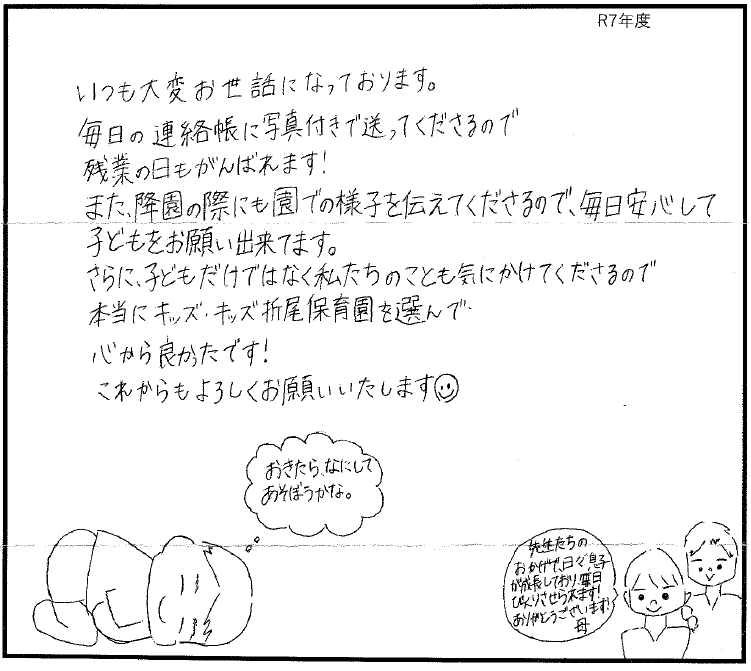 R7年度
いつも大変お世話になっております。
毎日の連絡帳に写真付きで送ってくださるので
残業の日もがんばれます!
また、降園の際にも園での様子を伝えてくださるので、毎日安心して
子どもをお願い出来てます。
さらに、子どもだけではなく私たちのことも気にかけてくださるので
本当にキッズ・キッズ折尾保育園を選んで
心から良かったです!
これからもよろしくお願いいたします
おきたら、なにして
あそぼうかな。
先生たちの
おかげで、日々、息子
が成長しており、毎日
びっくりさせられます!
ありがとうございます!
母